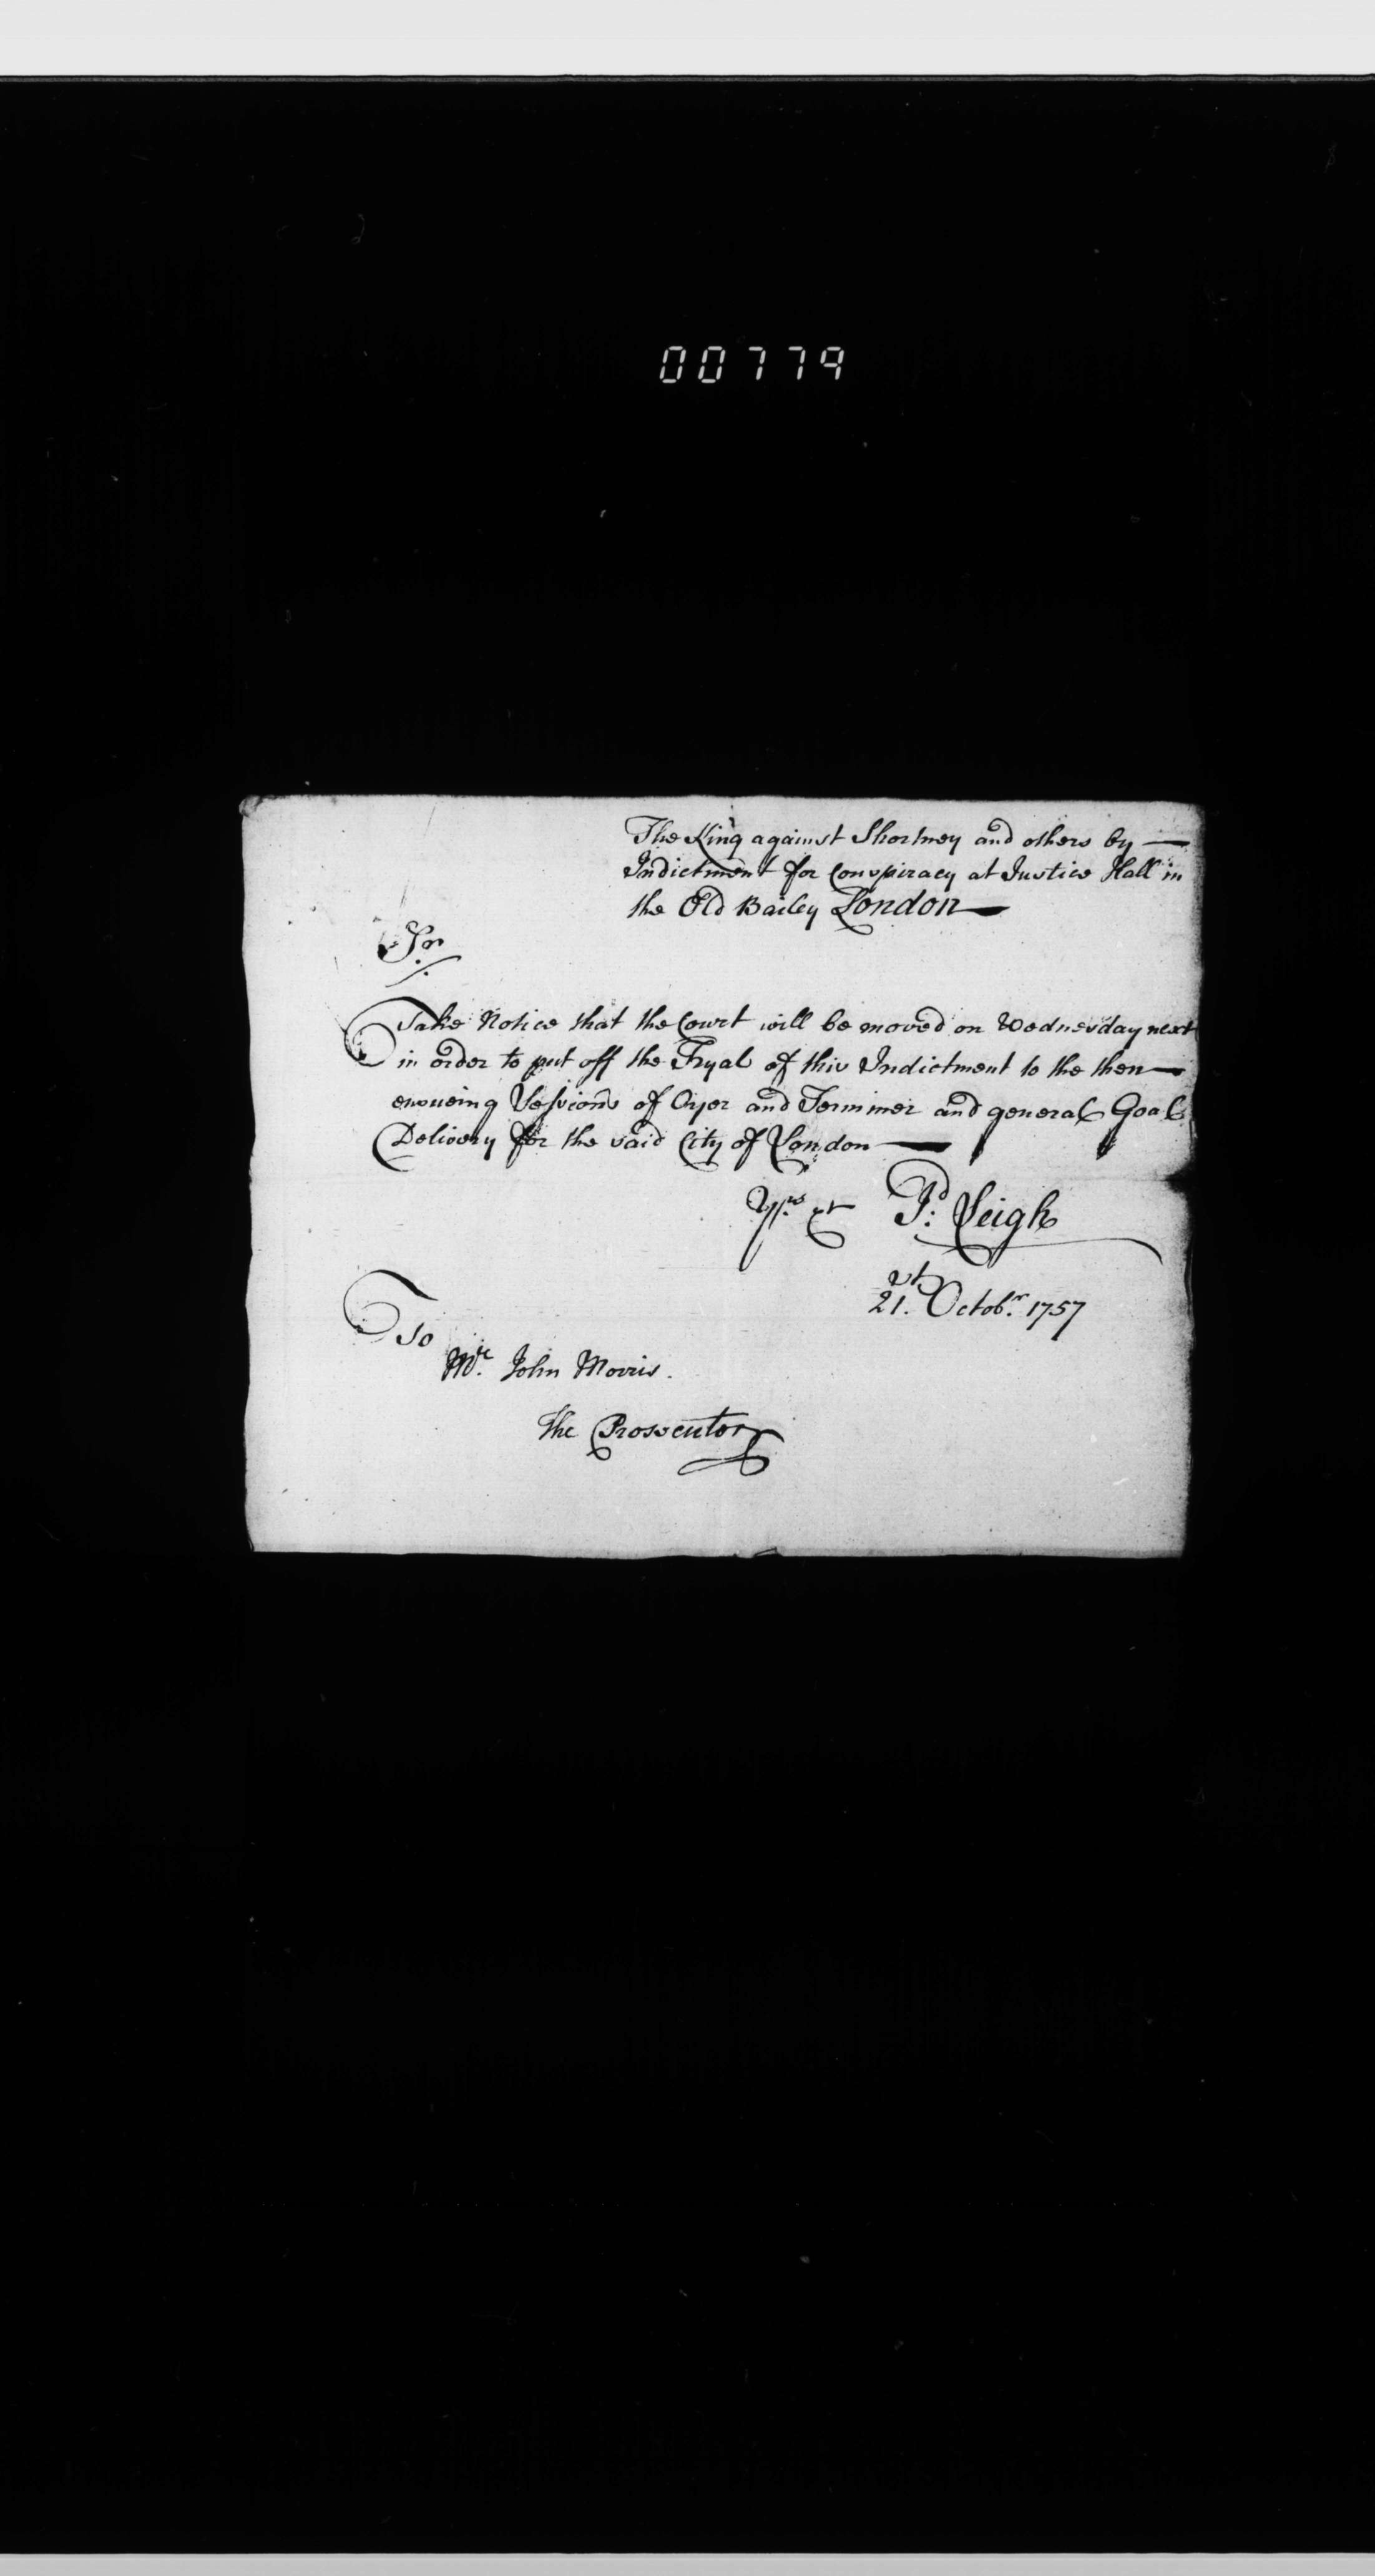 00779
The King against Shortney and others by —
Indictment for Conspiracy at Justice Hall in
the Old Bailey London —
Sr.
Take Notice that the Court will be moved on Wednesday next
in order to put off the Tryal of this Indictment to the then —
ensueing Sessions of Oyer and Terminer and general Goal
Delivery for the said City of London —
Yrs. &c Pd: Leigh
21.st Octobr. 1757
To
Mr. John Morris.
The Prosecutor